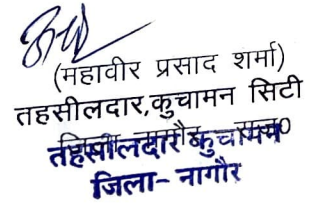 (महावीर प्रसाद शर्मा)
तहसीलदार,कुचामन सिटी
जिला नागौर राज0
तहसीलदार कुचामन
जिला- नागौर